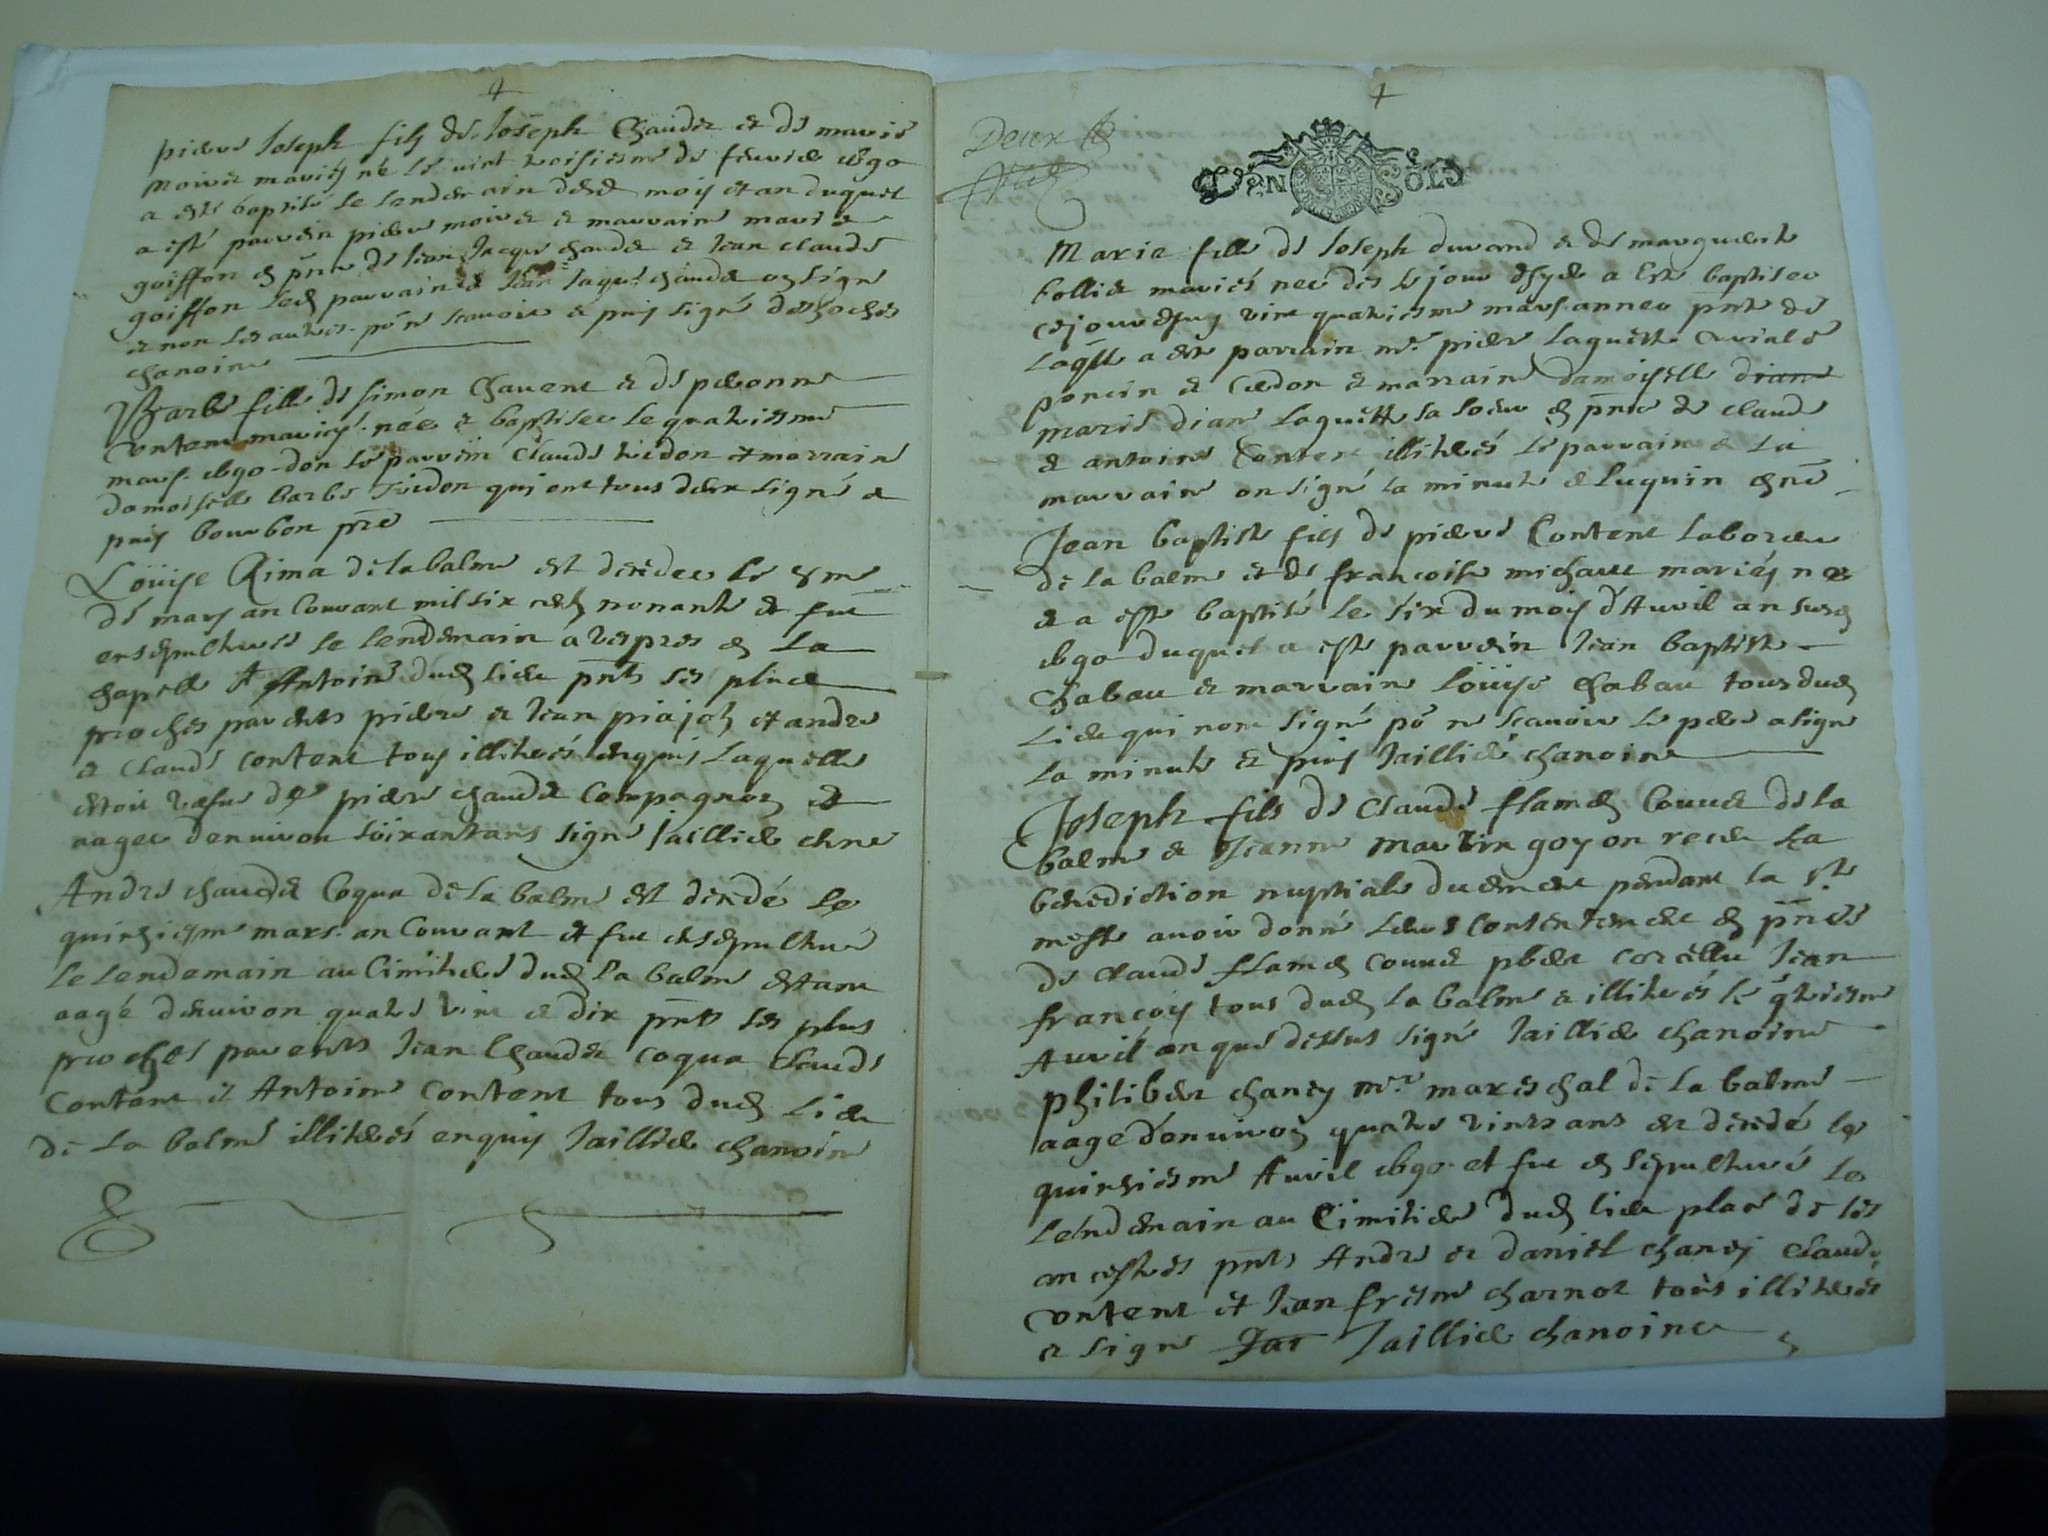 pierre Joseph fils de Joseph Chaudet et de marie
moiret mariés né le vint troisiesme de feuvrier
a esté baptisé le lendemain dud mois et an duquel
a esté parrein pierre moiret et marraine marie
goiffon en pnce de Jean Jacque chaudet et Jean claude
goiffon led parrain et Jean Jaque chaudet on signé
et non les autres po ne scavoir et puis signé deshoches
chanoine
Barbe fille de simon Chavent et de peronne
content mariés née et baptisee le quatriesme
mars don le parrein Claude tredon et marraine
damoiselle barbe tredon qui ont tous deux signé et
puis bourbon pre
Loüise Rima de la balme est decedee le
de mars an Courant mil six cents nonante et fut
ensepulturée le lendemain a vespres en la
chapelle st Antoine dud lieu pnts ses plus
proches parents pierre et Jean et andre
et claude content tous illiterés laquelle
estoit vefve de pierre chaudet Compagnon et
aagee denuiron soixant ans signé Jaillier chne
Andre chaudet Coqua de la balme est decedé le
quinziesme mars an Courant et fut ensepulturé
le lendemain au Cimitiere dud la balme estant
aagé denuiron quatre vint et dix pnts ses plus
proches parents Jean Chaudet coqua claude
Content et Antoine content tous dud lieu
de la balme illiterés enquis Jaillier chanoine
Deux s
DEN SOLS
Marie fille de Joseph durand et de marguerite
bollie mariés neé des le jour dhyer a Esté baptisee
cejourdhuy vint quatriesme mars annee pnte de
laqlle a esté parrain mr pierre laguette curial de
poncin et Cerdon et marraine damoiselle diane
marie diane laguette sa soeur en pnce de claude
et antoine Content illiterés le parrain et la
marraine on signé la minute et luquin chne
Jean baptiste fils de pierre Content laboreur
de la balme et de francoise michaut mariés né
et a esté baptisé le six du mois d'Auvril an susd
duquel a esté parrein Jean baptiste
Chabau et marraine loüise chabau tous dud
lieu qui nont signé po ne scavoir le pere a signé
la minute et puis Jaillier chanoine
Joseph fils de claude flamen Couvet de la
balme et Jeanne martin goyon receu la
benediction nuptiale duement pendant la ste
messe avoir donné leurs contentement en pnces
de claude flamen couvet Jean
francoys tous dud la balme et illiterés le
Auvril an que dessus signé Jaillier chanoine
philibert chaney mre mareschal de la balme
aagé denuiron quatre vints ans est decedé le
quinziesme Auvril et fut ensepulturé le
lendemain au Cimitiere dud lieu place de ses
ancestres pnts Andre et daniel chaney claude
content et Jean charnot tous illiterés
et signé Jaillier chanoine